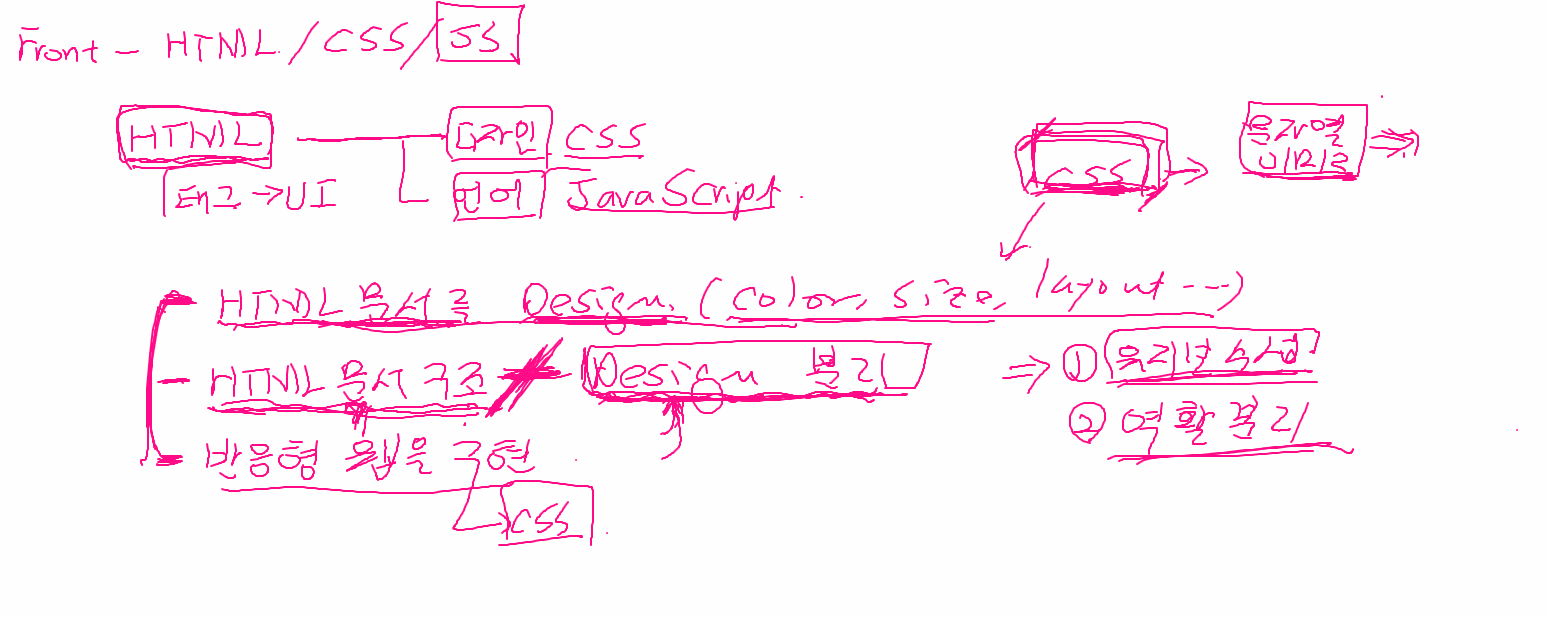 Front - HTML / CSS / JS
HTML 디자인 CSS
태그 → UI 언어 JavaScript.
CSS → 문자열 →
- HTML 문서를 Design. (color, size, layout ---)
- HTML 문서 구조 Design 분리 ⇒ ① 유지보수성
② 역할 분리
- 반응형 웹을 구현
CSS